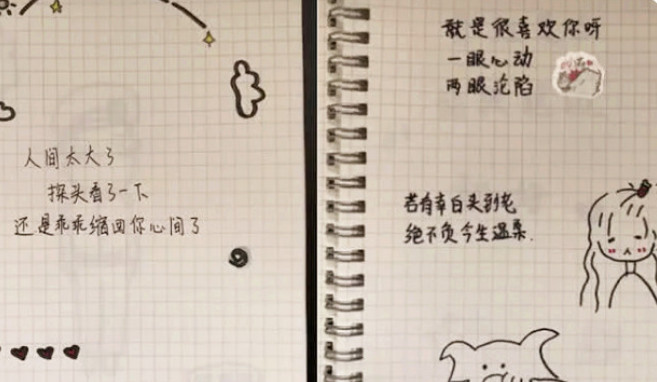 人间太大了
探头看了一下
还是乖乖缩回你心间了
就是很喜欢你呀
一眼心动
两眼沦陷
若有幸白头到老
绝不负今生温柔.